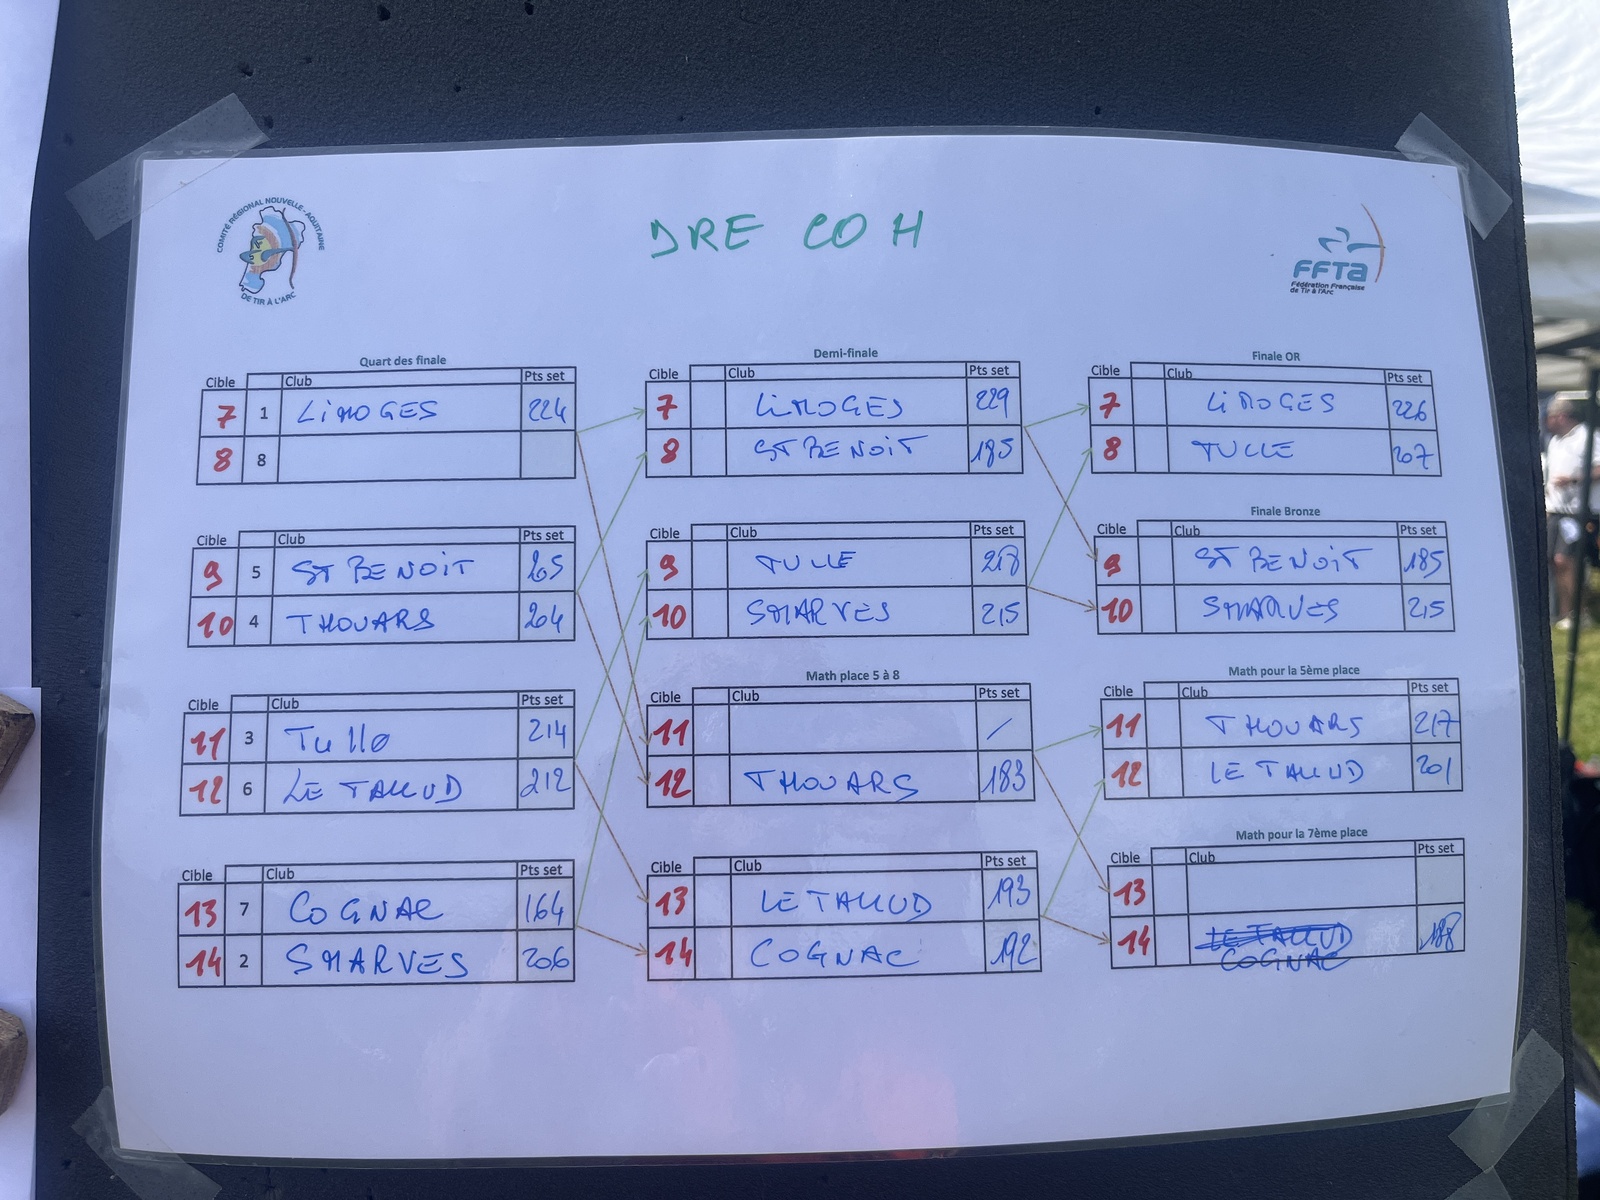 COMITÉ RÉGIONAL NOUVELLE-AQUITAINE
DE TIR À L'ARC
DRE CO H
FFTA
Fédération Française
de Tir à l'Arc
Quart des finale
Cible Club Pts set
7 1 LIMOGES 224
8 8
Cible Club Pts set
9 5 ST BENOIT 205
10 4 THOUARS 204
Cible Club Pts set
11 3 Tulle 214
12 6 LE TALLUD 212
Cible Club Pts set
13 7 COGNAC 164
14 2 SMARVES 206
Demi-finale
Cible Club Pts set
7 LIMOGES 229
8 ST BENOIT 185
Cible Club Pts set
9 TULLE
10 SMARVES 215
Math place 5 à 8
Cible Club Pts set
11 /
12 THOUARS 183
Cible Club Pts set
13 LE TALLUD 193
14 COGNAC 192
Finale OR
Cible Club Pts set
7 LIMOGES 226
8 TULLE 207
Finale Bronze
Cible Club Pts set
9 ST BENOIT 185
10 SMARVES 215
Math pour la 5ème place
Cible Club Pts set
11 THOUARS 217
12 LE TALLUD 201
Math pour la 7ème place
Cible Club Pts set
13
14 LE TALLUD
COGNAC